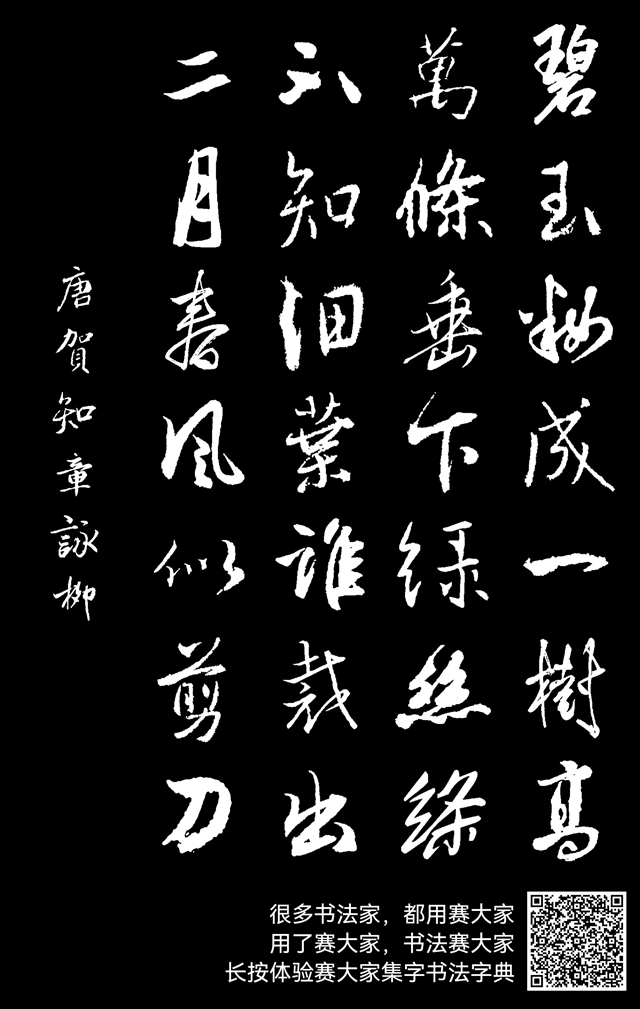 碧玉妝成一樹高
萬條垂下緑絲絛
不知細葉誰裁出
二月春風似剪刀
唐賀知章詠柳
很多书法家，都用赛大家
用了赛大家，书法赛大家
长按体验赛大家集字书法字典